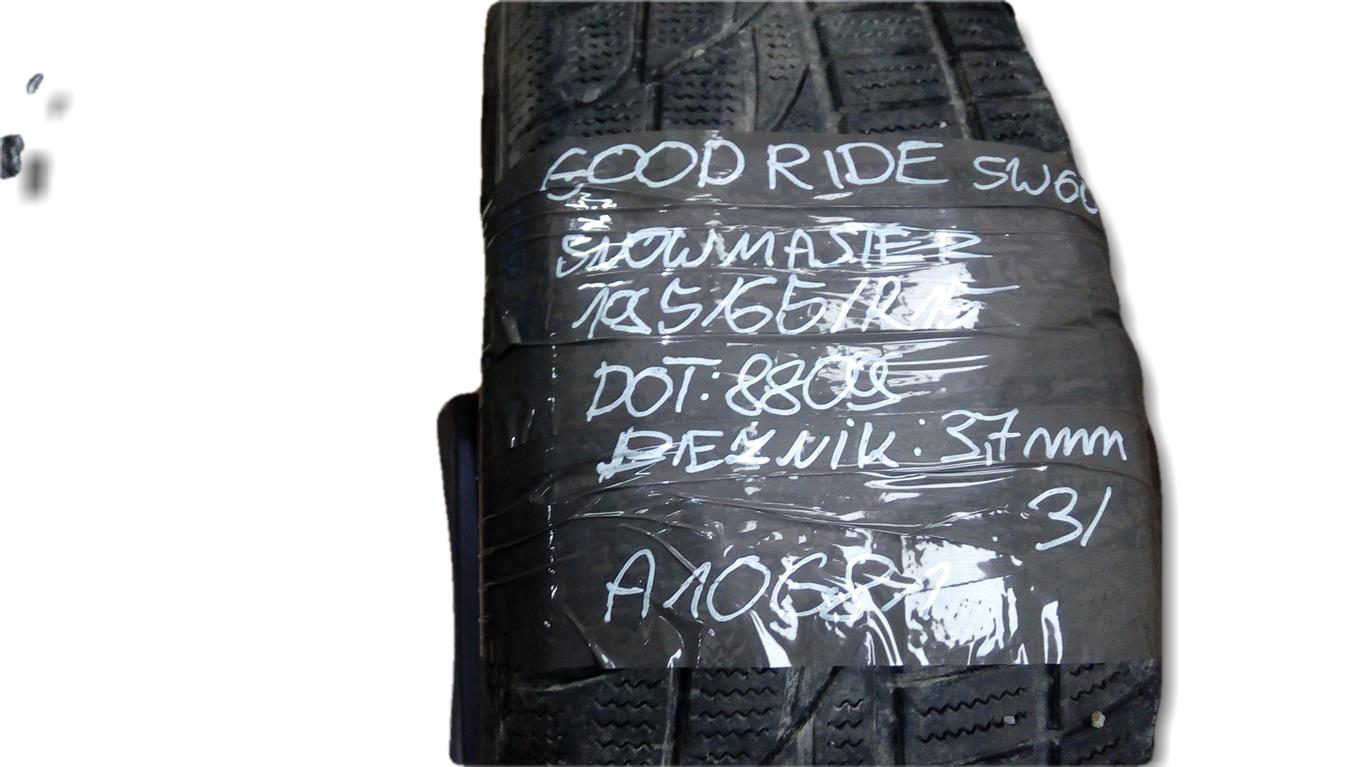 GOOD RIDE SW60
SNOWMASTER
195/65/R15
DOT: 8809
BEŻNIK: 3,7mm
31